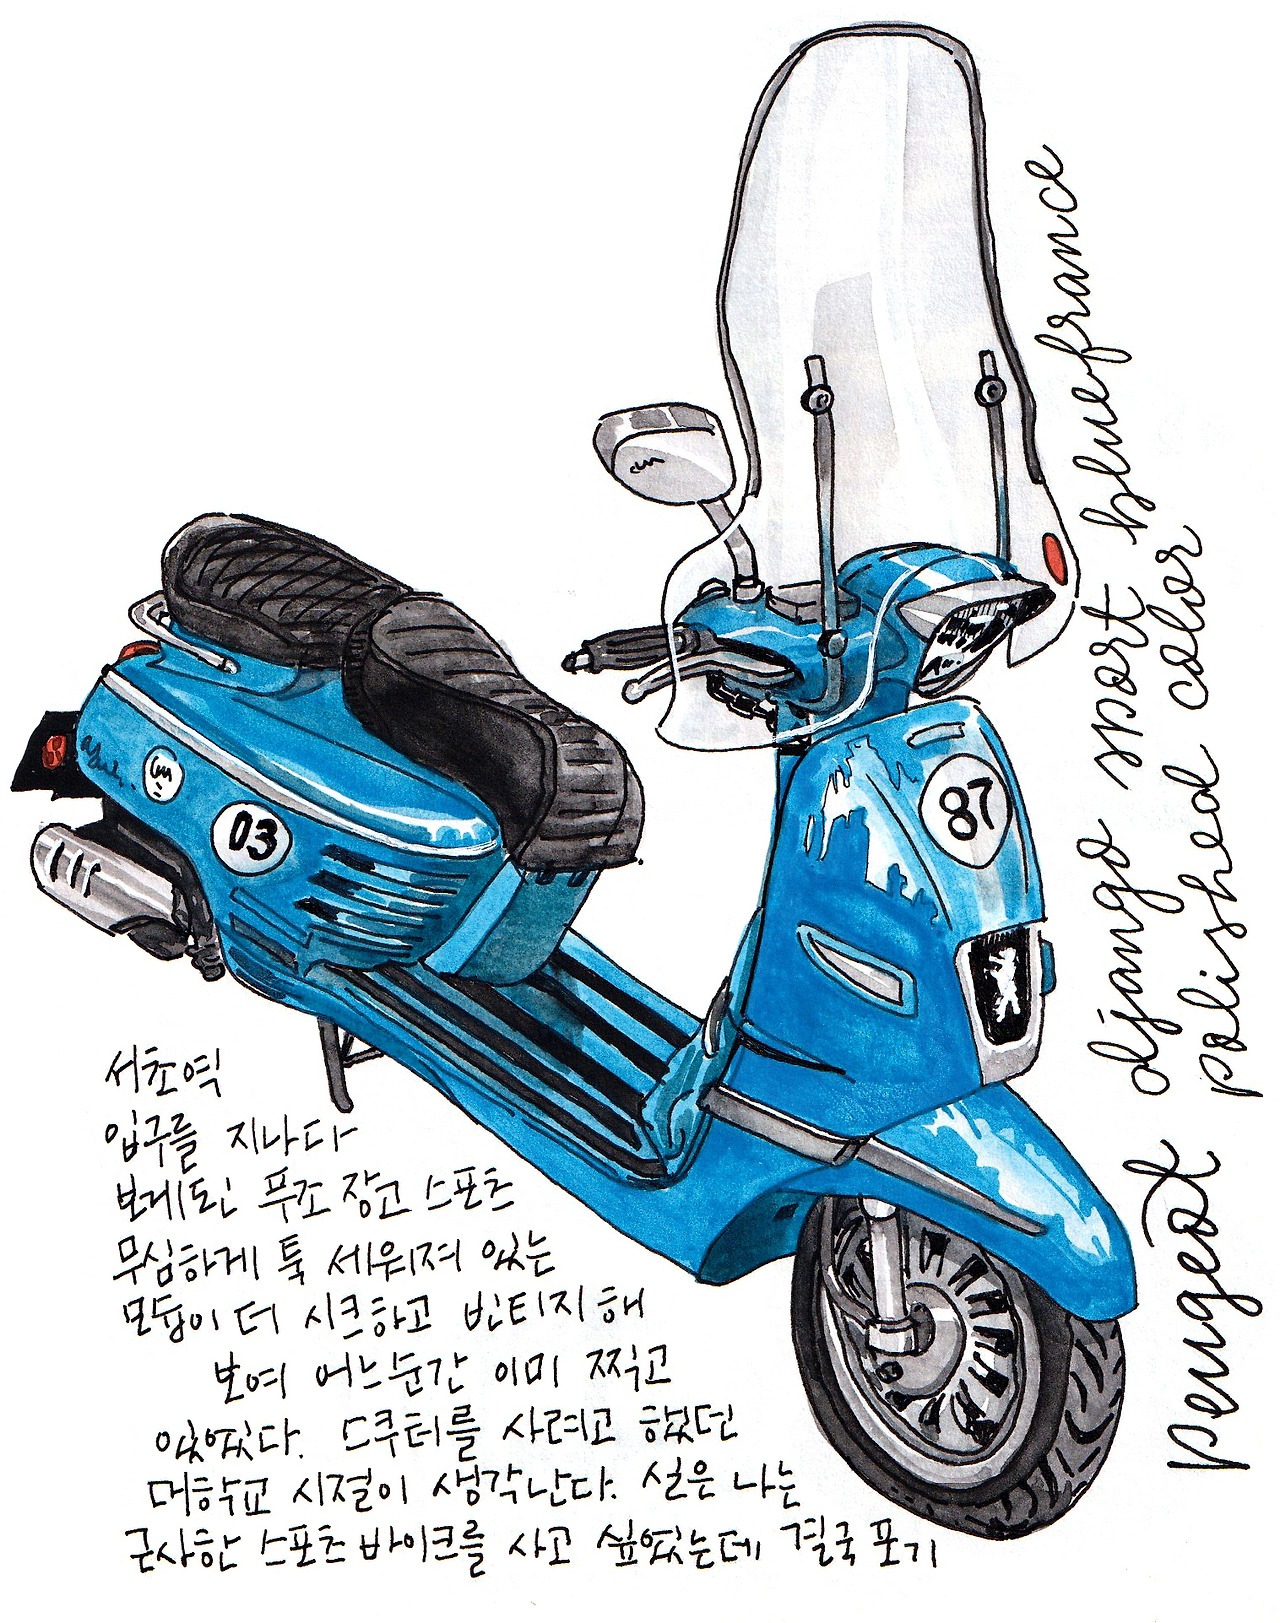 87
03
peugeot django sport bluefrance
polished color
서초역
입구를 지나다
보게된 푸조 장고 스포츠
무심하게 툭 세워져 있는
모습이 더 시크하고 빈티지 해
보여 어느순간 이미 찍고
있었다. 스쿠터를 사려고 했던
대학교 시절이 생각난다. 설은 나는
근사한 스포츠 바이크를 사고 싶었는데 결국 포기